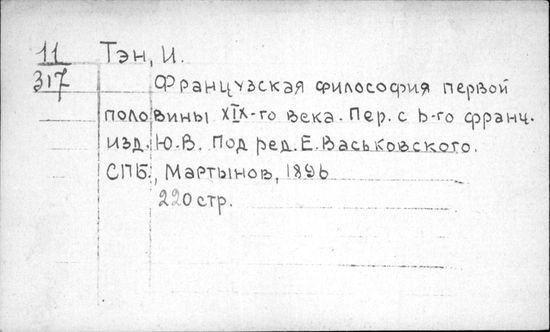 11
317
Тэн, И.
Французская философия первой
половины XIX-го века. Пер. с 6-го франц.
изд. Ю.В. Под ред. Е. Васьковского.
СПБ., Мартынов, 1896
220 стр.